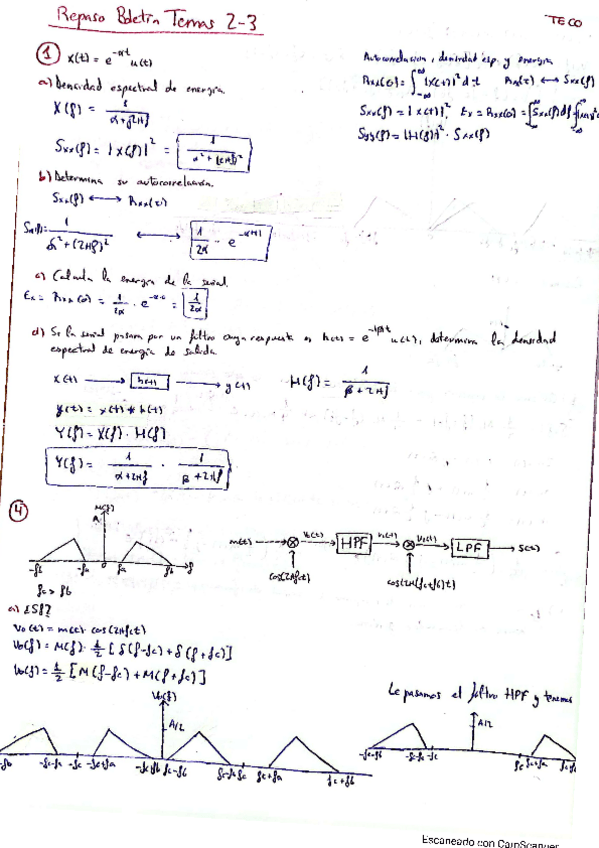 Repaso Boletín Temas 2-3
TECO
① x(t) = e^{-αt} u(t)
a) Densidad espectral de energía.
X(f) = 1/(α+j2πf)
Sxx(f) = |X(f)|² = 1/(α²+(2πf)²)
Autocorrelación, densidad esp. y energía
Rxx(0) = ∫_{-∞}^{∞} |x(t)|² dt    Rx(τ) ⟷ Sxx(f)
Sxx(f) = |X(f)|², Ex = Rxx(0) = ∫_{-∞}^{∞} Sxx(f) df
Syy(f) = |H(f)|² · Sxx(f)
b) Determina su autocorrelación.
Sxx(f) ⟷ Rxx(τ)
Sxx(f) = 1/(α²+(2πf)²) ⟷ 1/2α · e^{-α|τ|}
c) Calcula la energía de la señal.
Ex = Rxx(0) = 1/2α · e^{-α·0} = 1/2α
d) Si la señal pasara por un filtro cuya respuesta es h(t) = e^{-βt} u(t), determina la densidad
espectral de energía de salida
x(t) → h(t) → y(t)    H(f) = 1/(β+2πf)
y(t) = x(t) * h(t)
Y(f) = X(f) · H(f)
Y(f) = 1/(α+2πf) · 1/(β+2πf)
④
M(f)
A
-fb -fa 0 fa fb f
fc > fb
m(t) ⊗ v0(t) HPF v1(t) ⊗ v2(t) LPF s(t)
cos(2πfct) cos(2π(fc+fb)t)
a) ¿Sf?
v0(t) = m(t) · cos(2πfct)
V0(f) = M(f) · 1/2 [δ(f-fc) + δ(f+fc)]
V0(f) = 1/2 [M(f-fc) + M(f+fc)]
Le pasamos el filtro HPF y tenemos
V0(f)
A/2
-fc-fa -fc -fc+fa -fc+fb fc-fb fc-fa fc fc+fa fc+fb
A/2
-fc-fb -fc-fa -fc fc fc+fa fc+fb
Escaneado con CamScanner